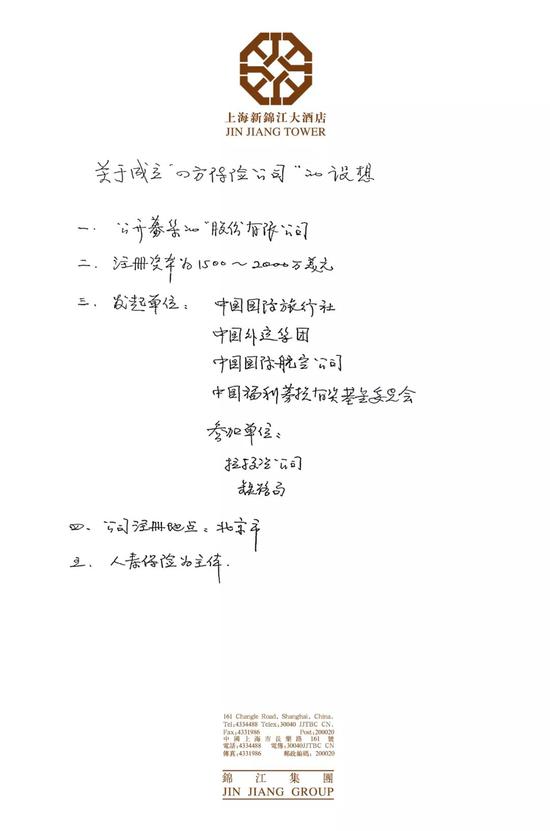 上海新錦江大酒店
JIN JIANG TOWER
关于成立“四方保险公司”的设想
一. 公开募集的“股份有限公司
二. 注册资本为1500～2000万美元
三. 发起单位：中国国际旅行社
中国外运集团
中国国际航空公司
中国福利募捐有奖基金委员会
参加单位：
公司
四、公司注册地点：北京市
五. 人寿保险为主体.
161 Changle Road, Shanghai, China.
Tel:4334488 Telex:30040 JJTBC CN.
Fax:4331986 Post:200020
中國上海市長樂路 161 號
電話:4334488 電傳:30040JJTBC CN
傳真:4331986 郵政編碼: 200020
錦江集團
JIN JIANG GROUP